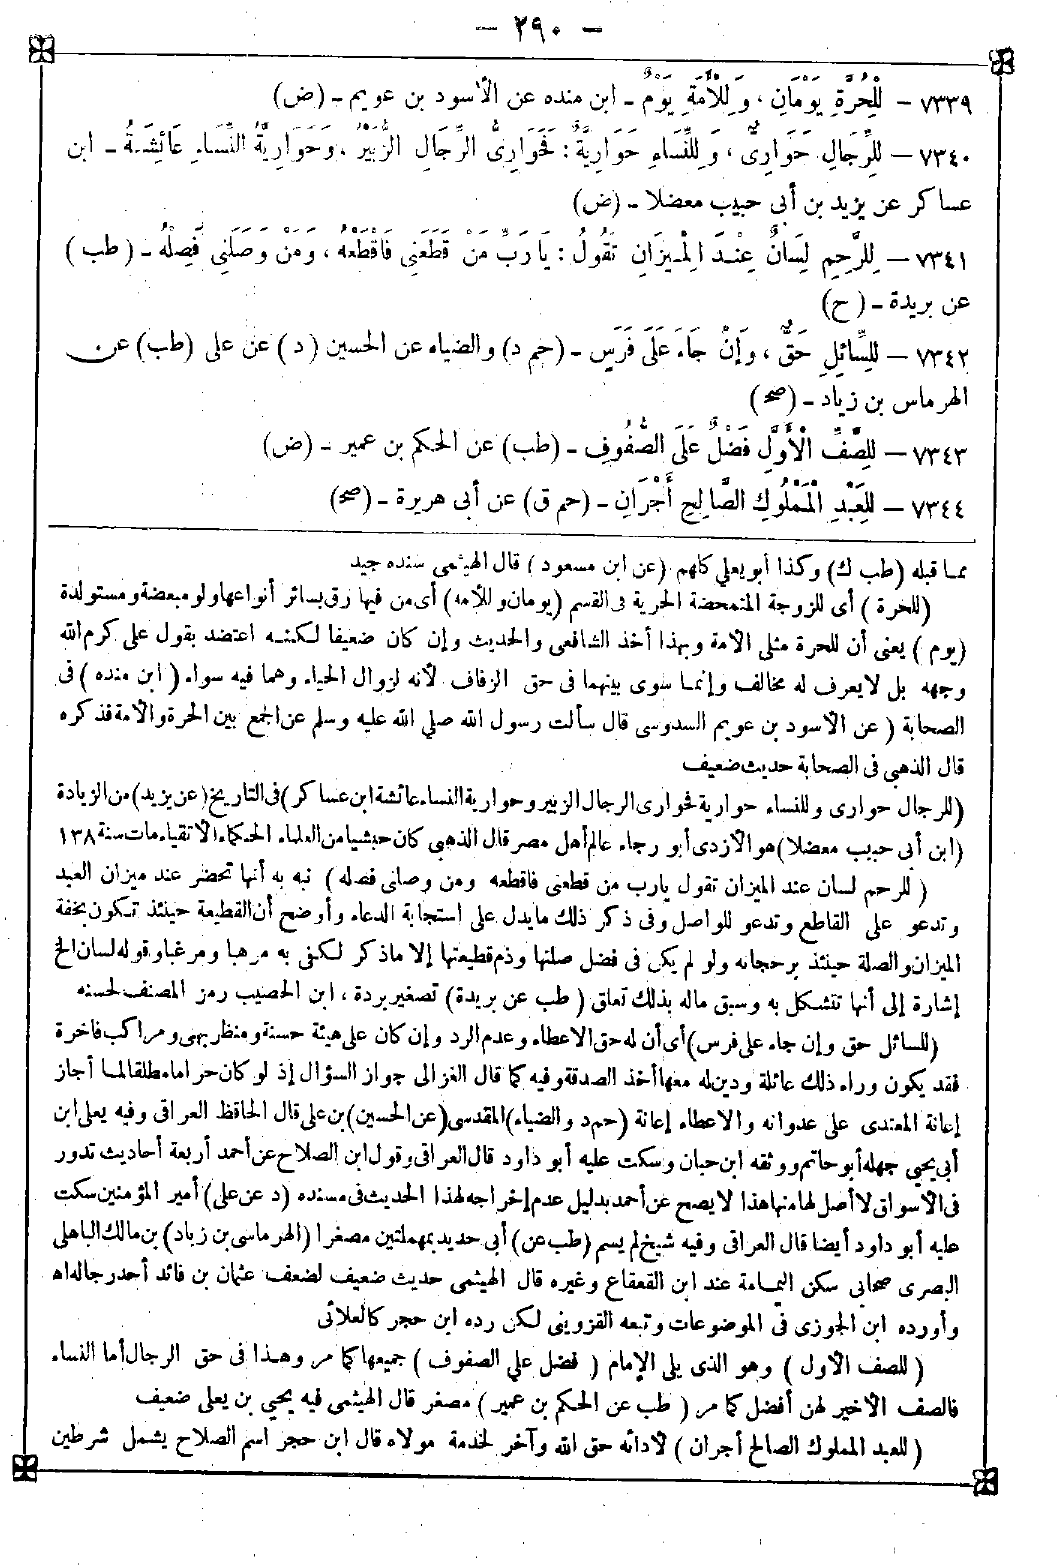 - ٢٩٠ -
٧٣٣٩ - لِلْحُرَّةِ يَوْمَانِ، وَلِلْأَمَةِ يَوْمٌ - ابن منده عن الأسود بن عويم - (ض)
٧٣٤٠ - لِلرِّجَالِ حَوَارِىٌّ، وَلِلنِّسَاءِ حَوَارِيَّةٌ: فَحَوَارِىُّ الرِّجَالِ الزُّبَيْرُ، وَحَوَارِيَّةُ النِّسَاءِ عَائِشَةُ - ابن
عساكر عن يزيد بن أبى حبيب معضلا - (ض)
٧٣٤١ - لِلرَّحِمِ لِسَانٌ عِنْدَ الْمِيزَانِ تَقُولُ: يَا رَبِّ مَنْ قَطَعَنِى فَاقْطَعْهُ، وَمَنْ وَصَلَنِى فَصِلْهُ - (طب)
عن بريدة - (ح)
٧٣٤٢ - لِلسَّائِلِ حَقٌّ، وَإِنْ جَاءَ عَلَى فَرَسٍ - (حم د) والضياء عن الحسين (د) عن على (طب) عن
الهرماس بن زياد - (صح)
٧٣٤٣ - لِلصَّفِّ الْأَوَّلِ فَضْلٌ عَلَى الصُّفُوفِ - (طب) عن الحكم بن عمير - (ض)
٧٣٤٤ - لِلْعَبْدِ الْمَمْلُوكِ الصَّالِحِ أَجْرَانِ - (حم ق) عن أبى هريرة - (صح)
مما قبله (طب ك) وكذا أبو يعلى كلهم (عن ابن مسعود) قال الهيثمى سنده جيد
(للحرة) أى للزوجة المتمحضة الحرية فى القسم (يومان وللأمة) أى من فيها رق بسائر أنواعها ولو مبعضة ومستولدة
(يوم) يعنى أن للحرة مثلى الأمة وبهذا أخذ الشافعى والحديث وإن كان ضعيفا لكنه اعتضد بقول على كرم الله
وجهه بل لا يعرف له مخالف وإنما سوى بينهما فى حق الزفاف لأنه لزوال الحياء وهما فيه سواء (ابن منده) فى
الصحابة (عن الأسود بن عويم السدوسى قال سألت رسول الله صلى الله عليه وسلم عن الجمع بين الحرة والأمة فذكره
قال الذهبى فى الصحابة حديث ضعيف
(للرجال حوارى وللنساء حوارية فحوارى الرجال الزبير وحوارية النساء عائشة ابن عساكر) فى التاريخ (عن يزيد) من الزيادة
(ابن أبى حبيب معضلا) هو الأزدى أبو رجاء عالم أهل مصر قال الذهبى كان حبشيا من العلماء الحكماء الأتقياء مات سنة ١٣٨
(للرحم لسان عند الميزان تقول يارب من قطعنى فاقطعه ومن وصلنى فصله) نبه به أنها تحضر عند ميزان العبد
وتدعو على القاطع وتدعو للواصل وفى ذكر ذلك ما يدل على استجابة الدعاء وأوضح أن القطيعة حينئذ تكون بخفة
الميزان والصلة حينئذ برجحانه ولو لم يكن فى فضل صلتها وذم قطيعتها إلا ما ذكر لكفى به مرهبا ومرغبا وقوله لسان الخ
إشارة إلى أنها تتشكل به وسبق ماله بذلك تعلق (طب عن بريدة) تصغير بردة، ابن الحصيب رمز المصنف لحسنه
(للسائل حق وإن جاء على فرس) أى أن له حق الاعطاء وعدم الرد وإن كان على هيئة حسنة ومنظر بهى ومراكب فاخرة
فقد يكون وراء ذلك عائلة ودين له معها أخذ الصدقة وفيه كما قال الغزالى جواز السؤال إذ لو كان حراما مطلقا لما أجاز
إعانة المعتدى على عدوانه والاعطاء إعانة (حم د والضياء) المقدسى (عن الحسين) بن على قال الحافظ العراقى وفيه يعلى ابن
أبى يحيى جهله أبو حاتم ووثقه ابن حبان وسكت عليه أبو داود قال العراقى وقول ابن الصلاح عن أحمد أربعة أحاديث تدور
فى الأسواق لا أصل لها منها هذا لا يصح عن أحمد بدليل عدم إخراجه لهذا الحديث فى مسنده (د عن على) أمير المؤمنين سكت
عليه أبو داود أيضا قال العراقى وفيه شيخ لم يسم (طب عن) أبى حديد بمهملتين مصغرا (الهرماس بن زياد) بن مالك الباهلى
البصرى صحابى سكن اليمامة عند ابن القعقاع وغيره قال الهيثمى حديث ضعيف لضعف عثمان بن فائد أحد رجاله اه
وأورده ابن الجوزى فى الموضوعات وتبعه القزوينى لكن رده ابن حجر كالعلائى
(للصف الأول) وهو الذى يلى الإمام (فضل على الصفوف) جميعها كما مر وهذا فى حق الرجال أما النساء
فالصف الأخير لهن أفضل كما مر (طب عن الحكم بن عمير) مصغر قال الهيثمى فيه يحيى بن يعلى ضعيف
(للعبد المملوك الصالح أجران) لأدائه حق الله وآخر لخدمة مولاه قال ابن حجر اسم الصلاح يشمل شرطين